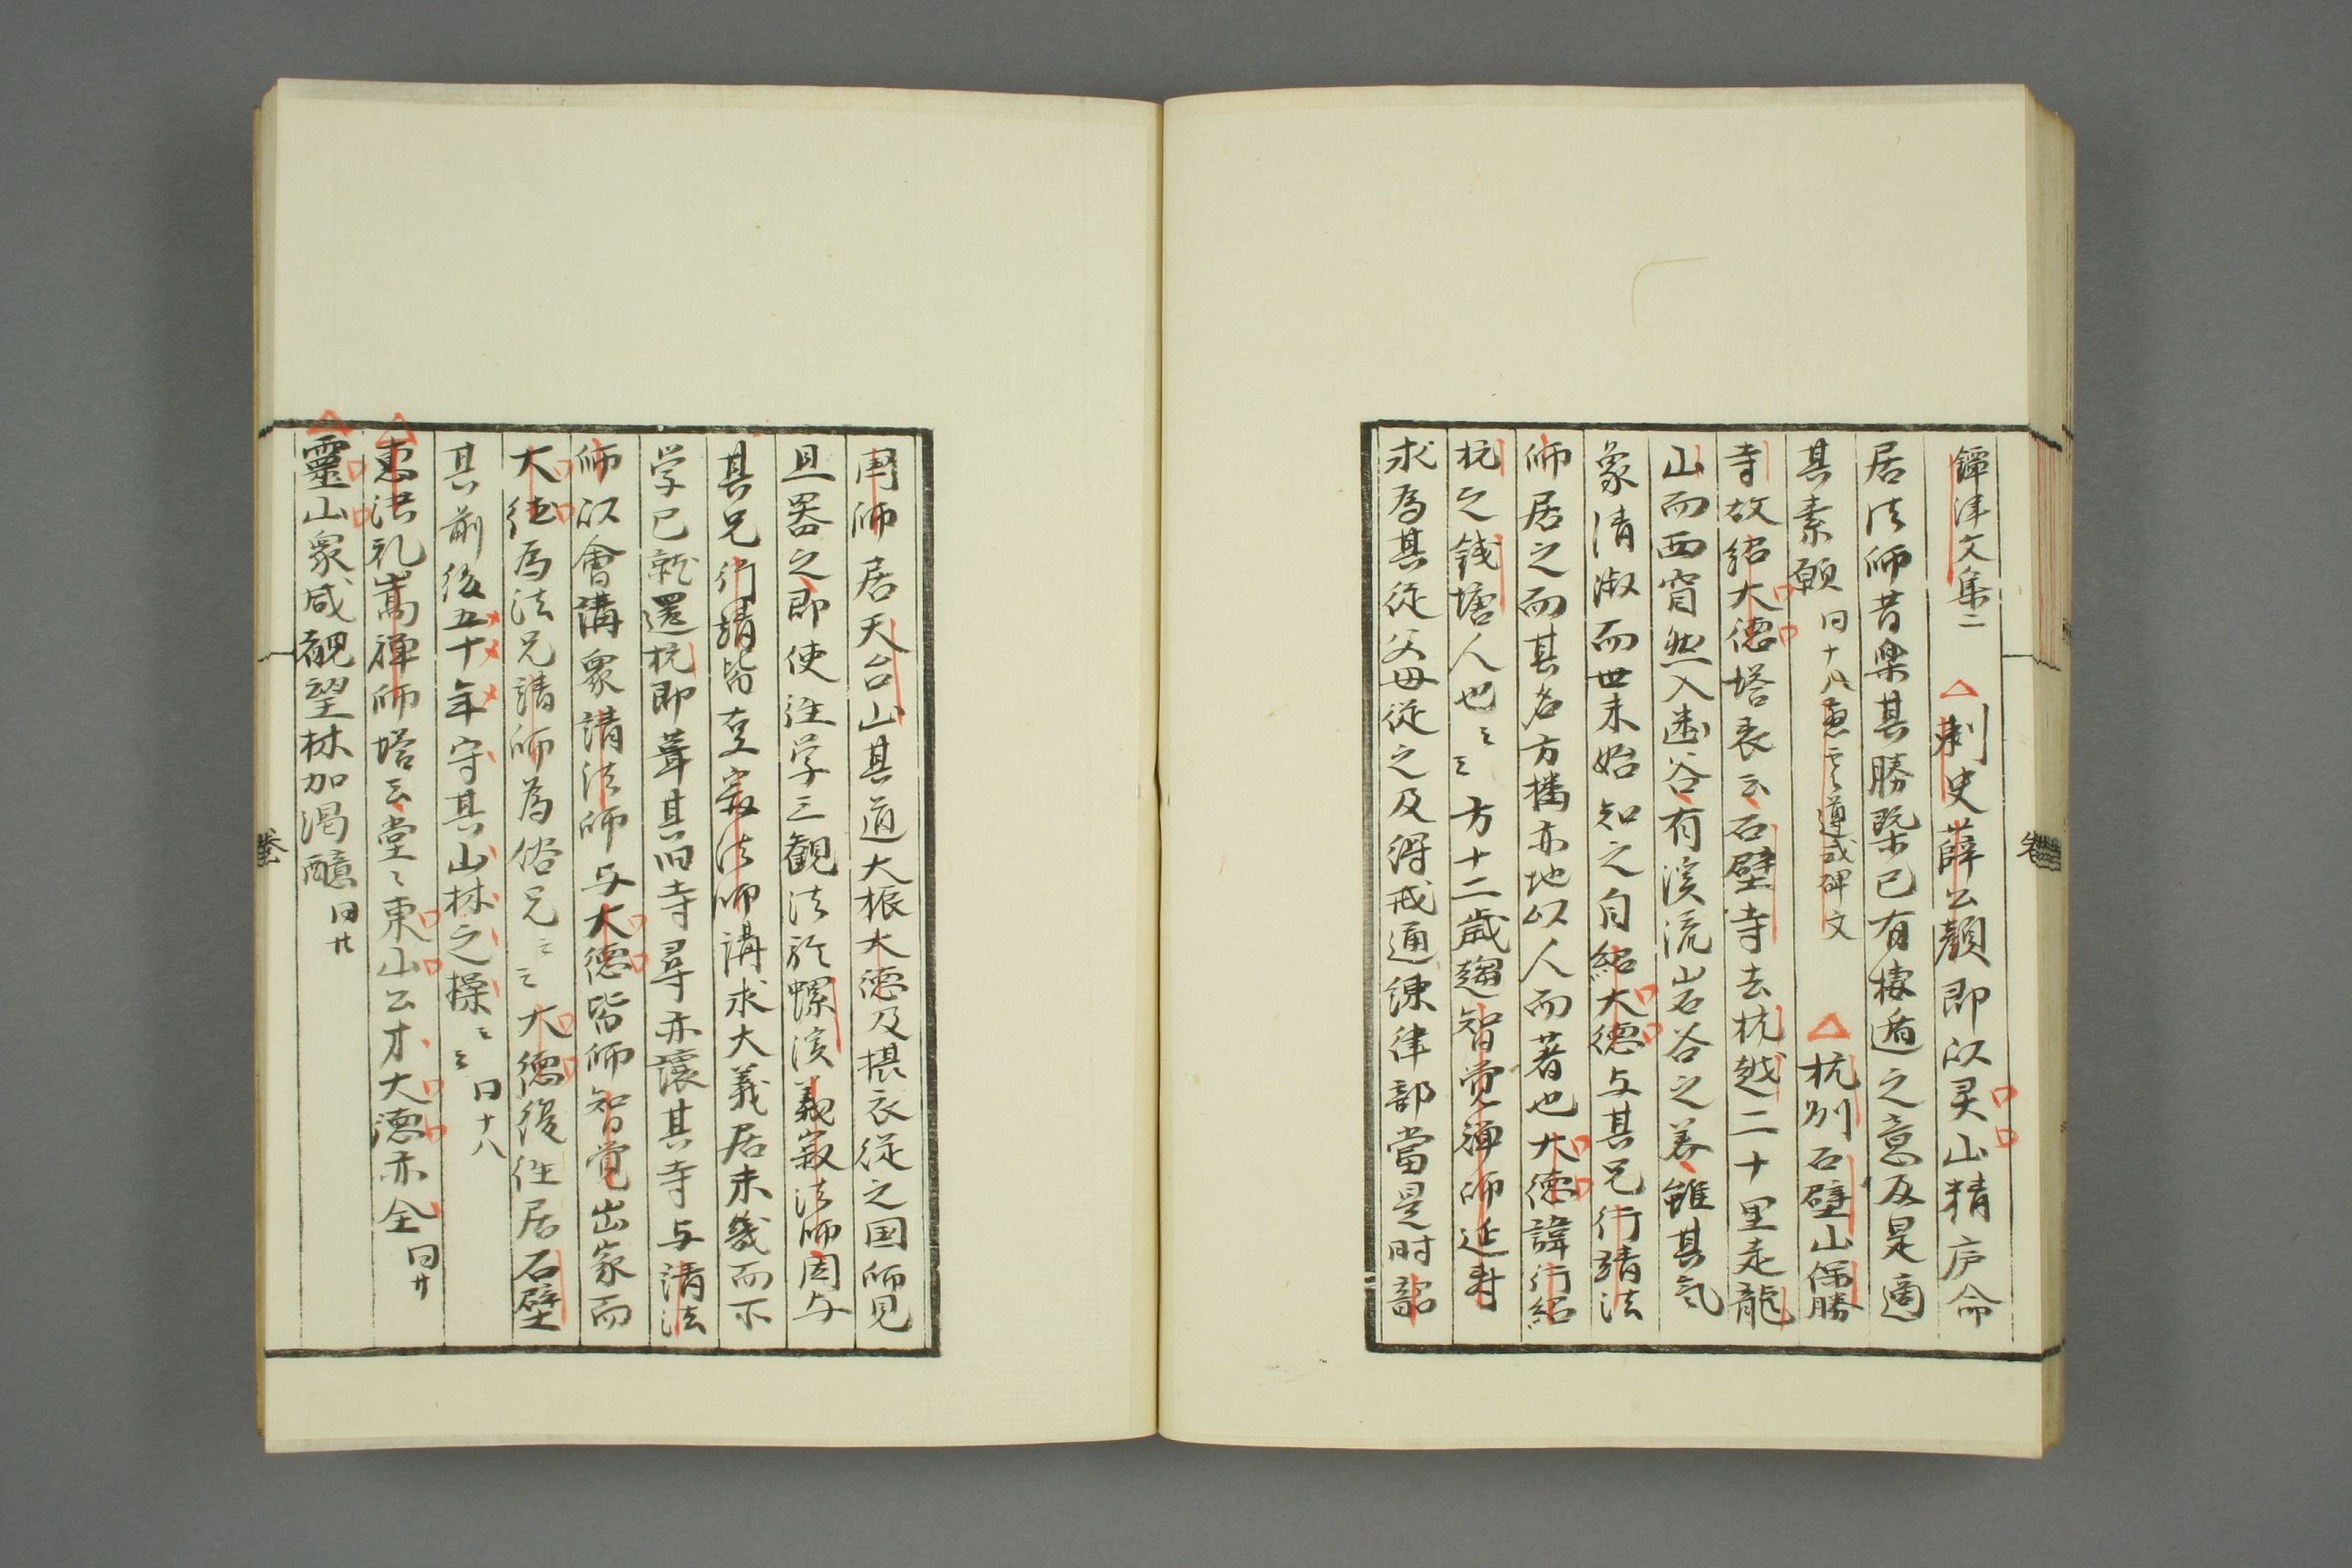 鐔津文集二 刺史薛公顏即以灵山精庐命
居法師昔樂其勝槩已有棲遁之意及是適
其素願 曰十八 遵式碑文 杭州石壁山保勝
寺故紹大德塔表云石壁寺去杭越二十里走龍
山而西窅然入幽谷有溪流岩谷之美雖其氣
象清淑而世未始知之自紹大德与其兄行靖法
師居之而其名方播亦地以人而著也大德諱行紹
杭之錢塘人也云云方十二歲趨智覚禅師延寿
求為其徒父母從之及得戒通練律部當是时韶
国師居天台山其道大振大德及摂衣從之国師見
且器之即使往学三観法於螺溪義寂法師因与
其兄行靖皆在寂法師講求大義居未幾而所
学已就還杭即葺其旧寺尋亦讓其寺与靖法
師以會講衆請法師与大德皆師智覚出家而
大德為法兄請師為俗兄云云大德後往居石壁
其前後五十年守其山林之操云云 曰十八
惠洪礼嵩禅師塔云堂々東山公才大德亦全 曰廿
靈山衆咸觀望林加渴醷 曰廿